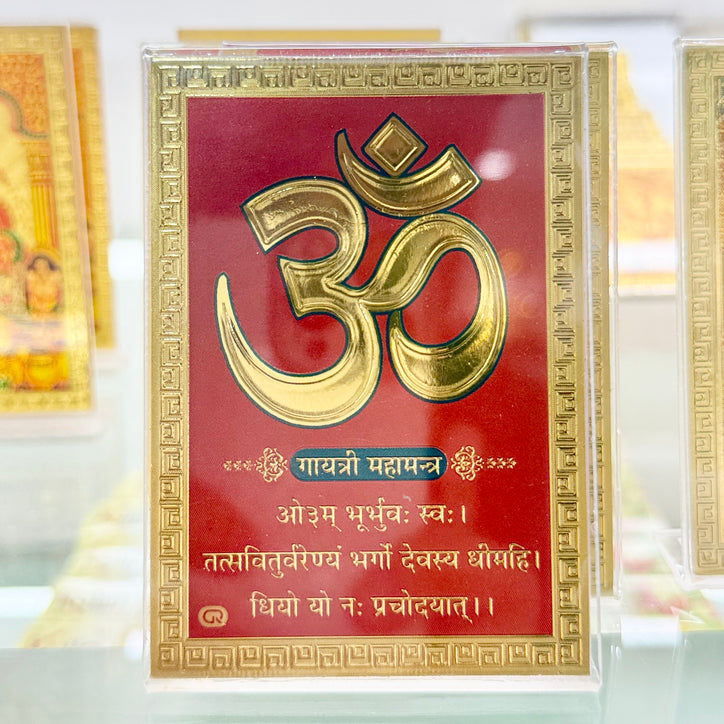 ॐ
गायत्री महामन्त्र
ओ३म् भूर्भुवः स्वः।
तत्सवितुर्वरेण्यं भर्गो देवस्य धीमहि।
धियो यो नः प्रचोदयात्।।